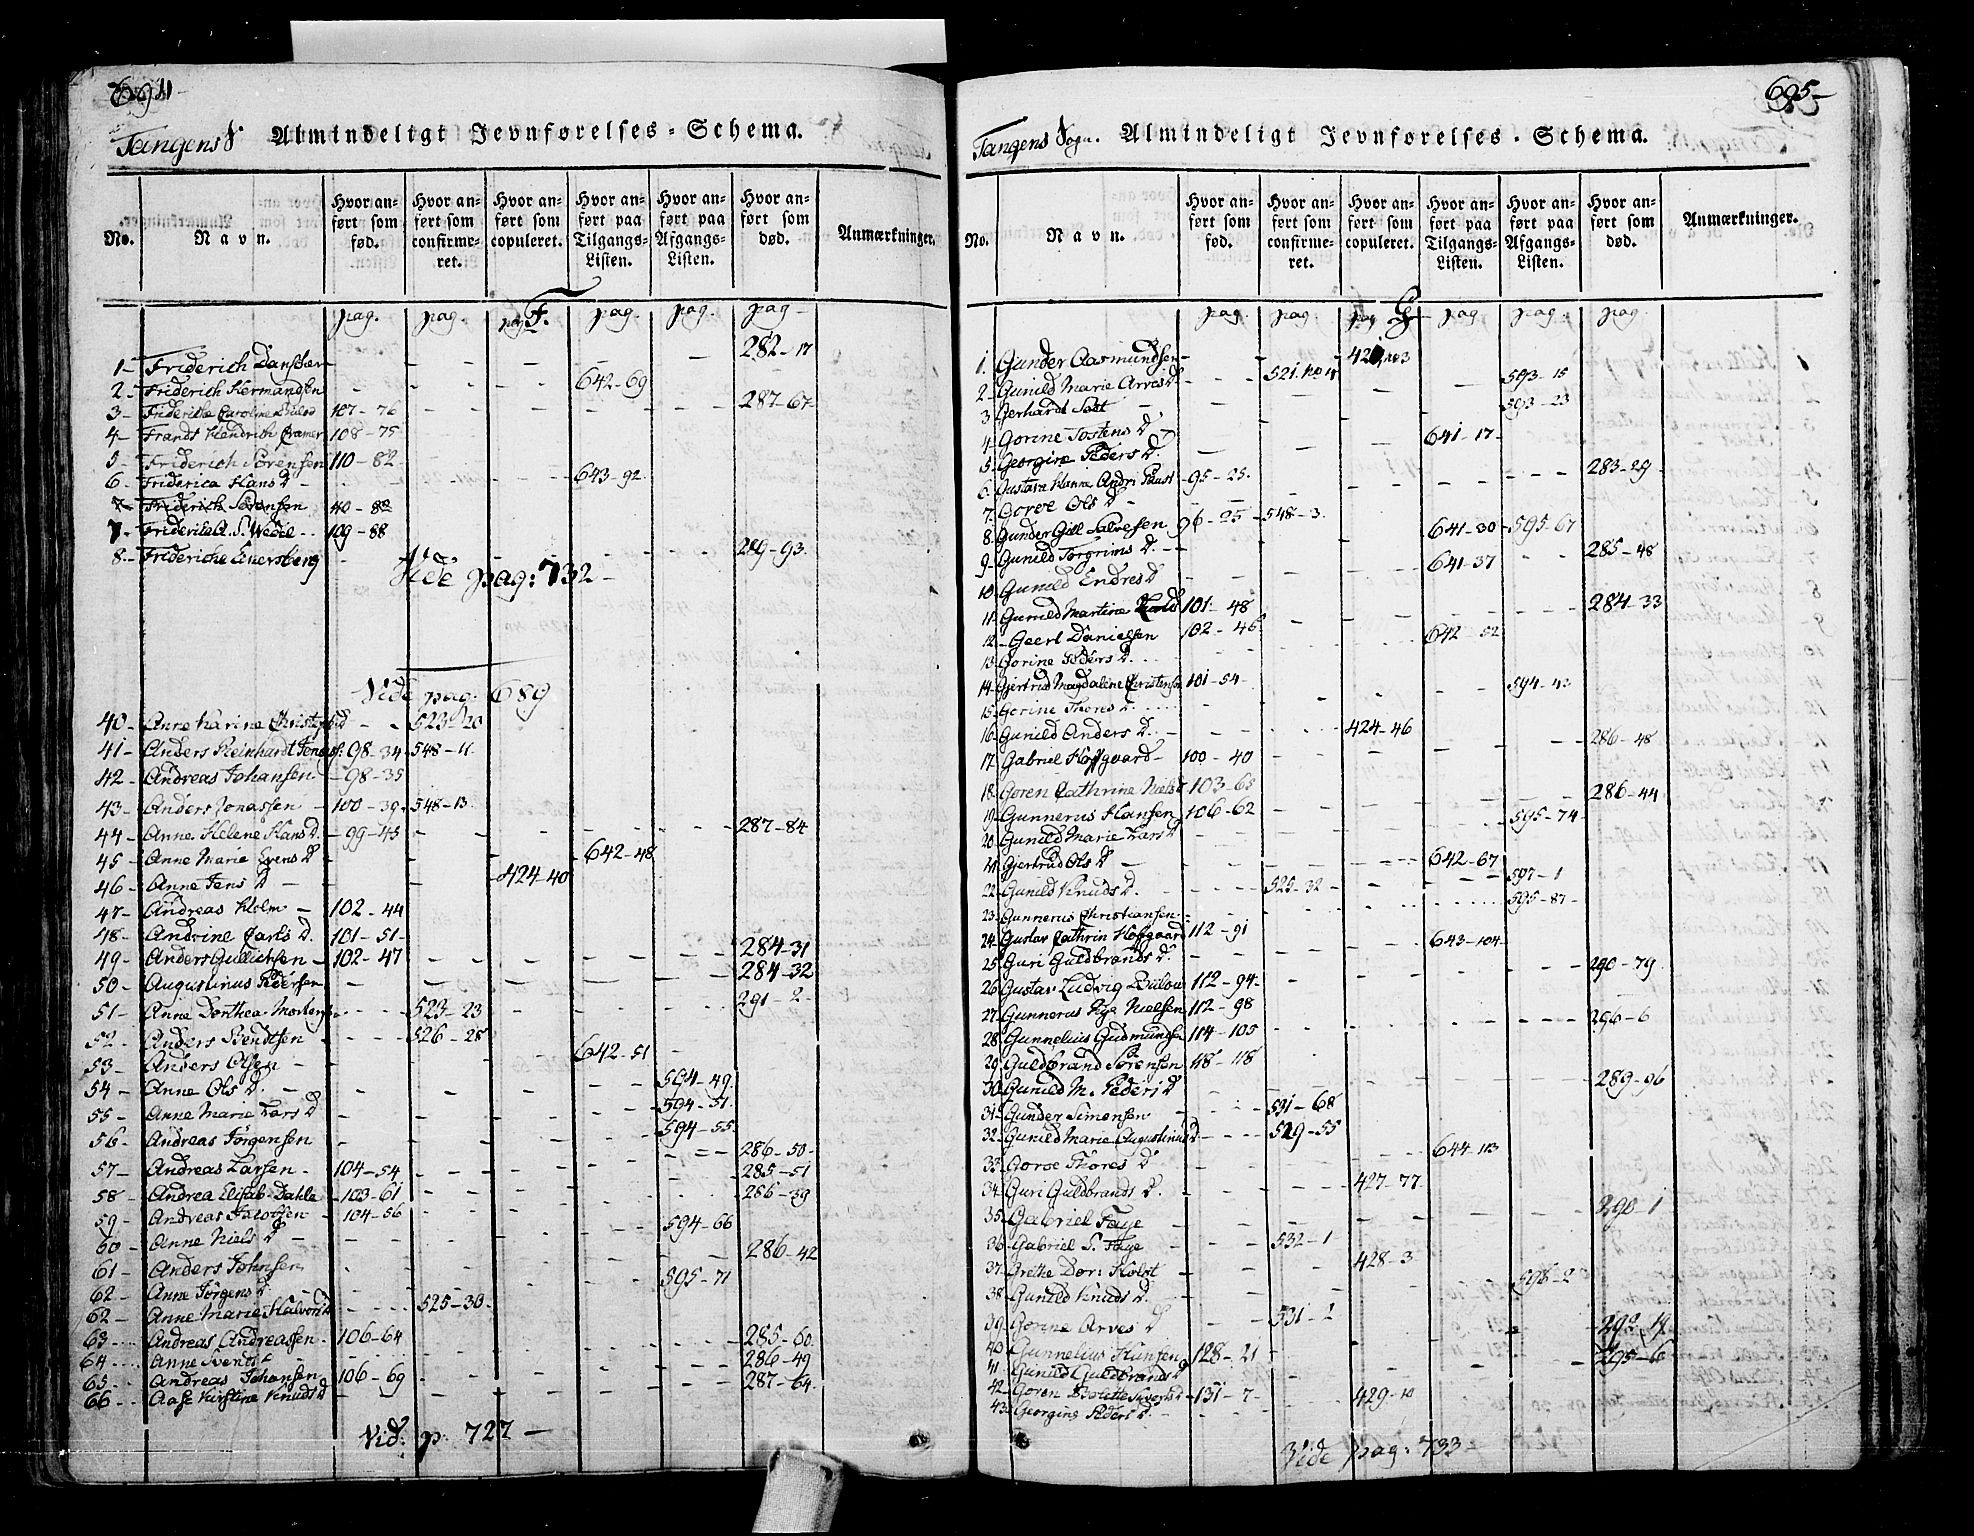 694
Tangens S. Almindeligt Jevnførelses-Schema.
No. Navn. Hvor anført som fød. Hvor anført som confirmeret. Hvor anført som copuleret. Hvor anført paa Tilgangs-Listen. Hvor anført paa Afgangs-Listen. Hvor anført som død. Anmærkninger.
F.
pag. pag. pag. pag. pag. pag
1 Friderich Danssen 282-17
2 Friderich Hermandsen 642-69
3 Friderike Caroline 107-76 287-67
4 Frandt Hendrich Cramer 108-75
5 Friderich Sörensen 110-82
6 Friderica Hans D 643-92
7 Friderich Sörensen 110-82
7 Friderike A. S. Wedel 109-88
8 Friderike Euersberg 289-93
Vide pag: 732
Vide pag. 689
40 Anne Karine Christens D 523-20
41 Anders Reinhardt Jens f. 98-34 548-11
42 Andreas Johansen 98-35
43 Anders Jonassen 100-39 548-13
44 Anne Helene Hans D. 99-45 287-84
45 Anne Marie Evens D 642-48
46 Anne Jens D 424-40
47 Andreas Holm 102-44
48 Andrine Carls D. 101-51
49 Anders Gullichsen 102-47 284-31
50 Augustinus Pedersen 284-32
51 Anne Dorthea Mortens 523-23 291-2
52 Anders Bendtsen 526-28
53 Anders Olsen 642-51
54 Anne Ols D 594-49
55 Anne Marie Lars D 594-51
56 Andreas Jörgensen 594-55
57 Andreas Larsen 104-54 286-50
58 Andrea Elisab. Dahle 103-61 285-51
59 Andreas Jacobsen 104-56 286-39
60 Anne Niels D 594-66
61 Anders Johnsen 286-42
62 Anne Jörgens D. 595-71
62 Anne Marie Halvors D 525-30
63 Andreas Andreassen 106-64 285-60
64 Anne Svends 286-49
65 Andreas Johansen 106-69 287-64
66 Aase Kirstine Knuds D
Vid: p. 727
695
Tangens Sogn. Almindeligt Jevnførelses-Schema.
No. Navn. Hvor anført som fød. Hvor anført som confirmeret. Hvor anført som copuleret. Hvor anført paa Tilgangs-Listen. Hvor anført paa Afgangs-Listen. Hvor anført som død. Anmærkninger.
G
pag. pag. pag pag pag pag
1 Gunder Aasmundsen 421, no 3
2 Gunild Marie Arves D 521. no 4 593-15
3 Gerhardt Sost 593-23
4 Gorine Tostens D 641-17
5 Georgine Peders D. 283-29
6 Gustava Hanna Andri Faust 95-25
7 Goroe Ols D
8 Gunder Gill Salvesen 96-25 548-3 641-30 595-67
9 Gunild Torgrims D. 641-37 285-48
10 Gunild Endres D
11 Gunild Martine Lars D 101-48 284-33
12 Geert Danielsen 102-46 642-52
13 Gorine Peders D.
14 Gjertrud Magdalene Christensen 101-54 594-43
15 Gorine Thores D
16 Gunild Anders D. 424-46 286-48
17 Gabriel Hoffgaard 100-40
18 Goren Cathrine Niels D 103-65 286-44
19 Gunnerus Hansen 106-62 595-74
20 Gunild Marie Lars D
21 Gjertrud Ols D 642-67 597-1
22 Gunild Knuds D. 525-32 595-87
23 Gunnerus Christiansen
24 Gustav Cathrin Hoffgaard 112-91 643-104
25 Guri Guldbrands D. 290-79
26 Gustav Ludvig Bülow 112-94
27 Gunnerus Nye Nielsen 112-98 296-6
28 Gunnelius Gudmundsen 114-105
29 Guldbrand Sörensen 118-118 289-96
30 Gunild M. Peders D
31 Gunder Simonsen 531-68
32 Gunild Marie Augustinus D 529-55
33 Goroe Thores D 644-113
34 Guri Guldbrands D. 427-77
35 Gabriel Faye 290-1
36 Gabriel S. Faye 532-1
37 Grethe Dor. Holst 428-3 598-2
38 Gunild Knuds D.
39 Gorine Arves D 531-2 292-19
40 Gunnelius Hansen 128-21 295-6
41 Gunild Guldbrands D
42 Goren 131-7 429-10
43 Georgine Peders D.
Vide pag: 733